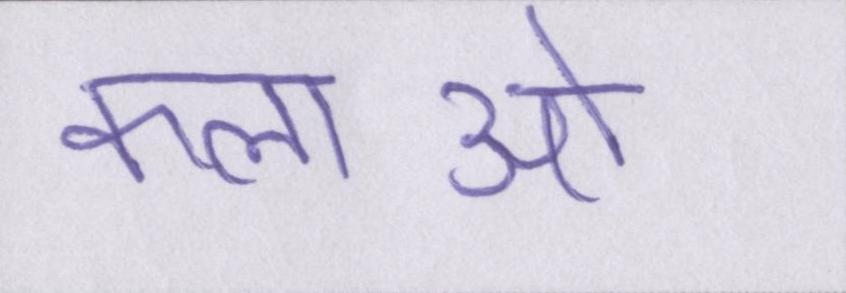 कलाओ